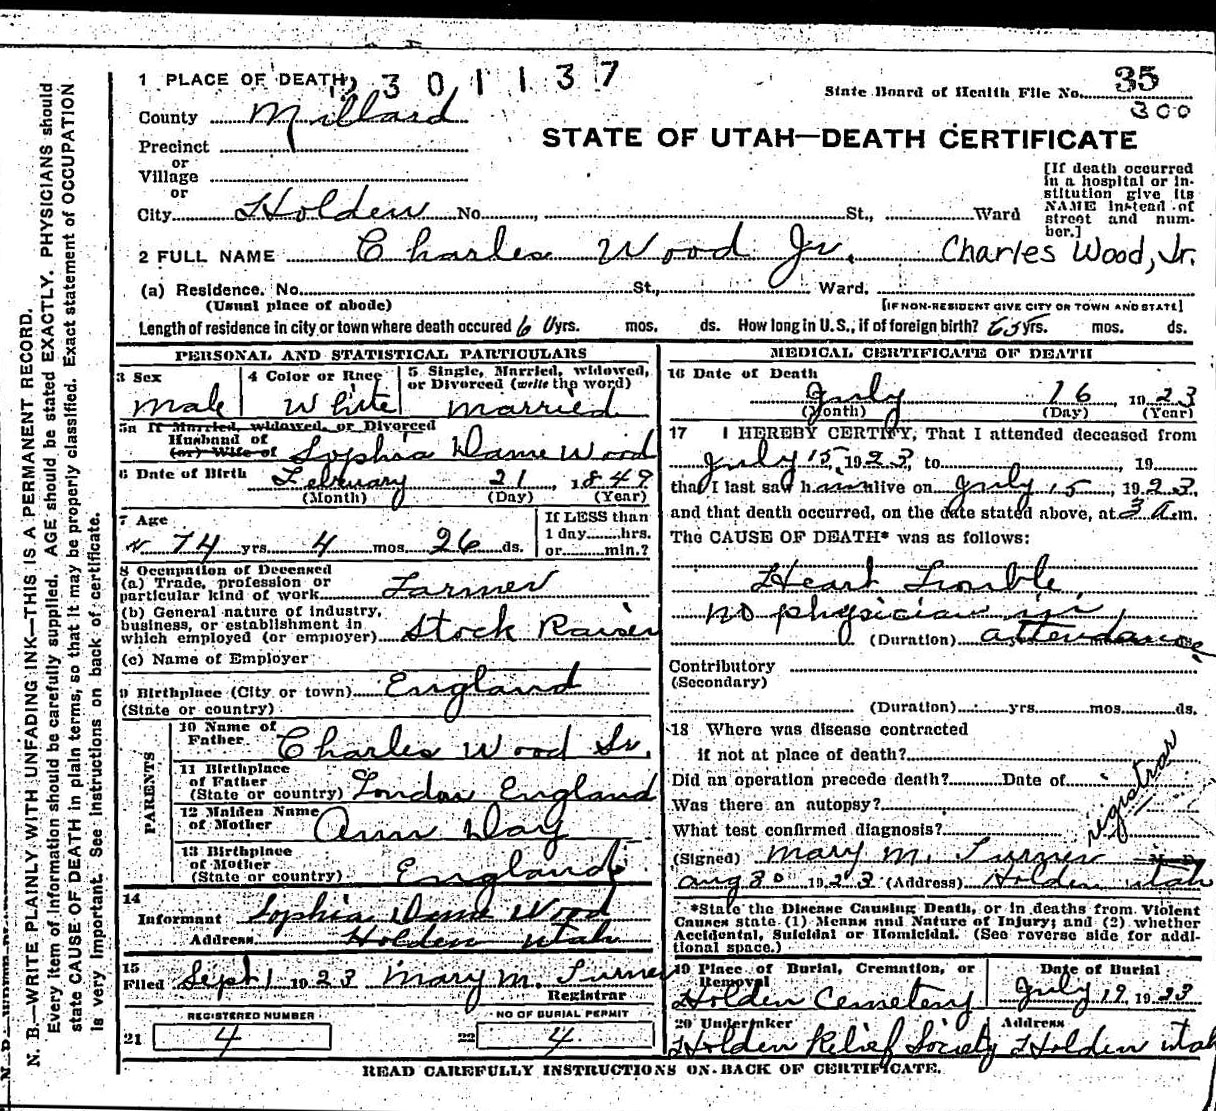 1 PLACE OF DEATH 2301137
35
State Board of Health File No.
300
County Millard
STATE OF UTAH—DEATH CERTIFICATE
Precinct
or
Village
or
City Holden No. , St., Ward
[If death occurred in a hospital or institution give its NAME instead of street and number.]
2 FULL NAME Charles Wood Jr. Charles Wood, Jr.
(a) Residence. No. St., Ward.
(Usual place of abode) [IF NON-RESIDENT GIVE CITY OR TOWN AND STATE]
Length of residence in city or town where death occured 60 yrs. mos. ds. How long in U.S., if of foreign birth? 65 yrs. mos. ds.
PERSONAL AND STATISTICAL PARTICULARS
3 Sex Male
4 Color or Race White
5 Single, Married, widowed, or Divorced (write the word) Married
5a If Married, widowed, or Divorced
Husband of
(or) Wife of Sophia Dame Wood
6 Date of Birth February 21 1849
(Month) (Day) (Year)
7 Age 74 yrs. 4 mos. 26 ds.
If LESS than
1 day hrs.
or min.?
8 Occupation of Deceased
(a) Trade, profession or
particular kind of work Farmer
(b) General nature of industry,
business, or establishment in
which employed (or employer) Stock Raiser
(c) Name of Employer
9 Birthplace (City or town) England
(State or country)
PARENTS
10 Name of
Father Charles Wood Sr.
11 Birthplace
of Father
(State or country) London England
12 Maiden Name
of Mother Ann Day
13 Birthplace
of Mother
(State or country) England
14
Informant Sophia Dame Wood
Address Holden Utah
15
Filed Sept 1 1923 Mary M. Turner
Registrar
REGISTERED NUMBER
21 4
NO OF BURIAL PERMIT
22 4
MEDICAL CERTIFICATE OF DEATH
16 Date of Death
July 16 1923
(Month) (Day) (Year)
17 I HEREBY CERTIFY, That I attended deceased from
July 15, 1923, to , 19
that I last saw him alive on July 15, 1923,
and that death occurred, on the date stated above, at 3 a.m.
The CAUSE OF DEATH* was as follows:
Heart Trouble
no physician in
(Duration) attendance
Contributory
(Secondary)
(Duration) yrs. mos. ds.
18 Where was disease contracted
if not at place of death?
Did an operation precede death? Date of
Was there an autopsy?
What test confirmed diagnosis?
registrar
(Signed) Mary M. Turner M. D.
Aug 30 1923 (Address) Holden Utah
*State the Disease Causing Death, or in deaths from Violent
Causes state (1) Means and Nature of Injury; and (2) whether
Accidental, Suicidal or Homicidal. (See reverse side for addi-
tional space.)
19 Place of Burial, Cremation, or
Removal
Holden Cemetery
Date of Burial
July 19, 1923
20 Undertaker
Holden Relief Society
Address
Holden Utah
READ CAREFULLY INSTRUCTIONS ON BACK OF CERTIFICATE.
N. B.—WRITE PLAINLY WITH UNFADING INK—THIS IS A PERMANENT RECORD.
Every item of information should be carefully supplied. AGE should be stated EXACTLY. PHYSICIANS should
state CAUSE OF DEATH in plain terms, so that it may be properly classified. Exact statement of OCCUPATION
is very important. See instructions on back of certificate.